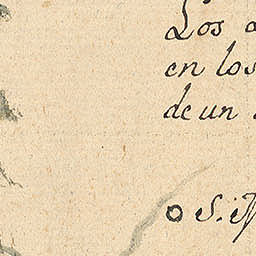 Los
en los
de un
S.